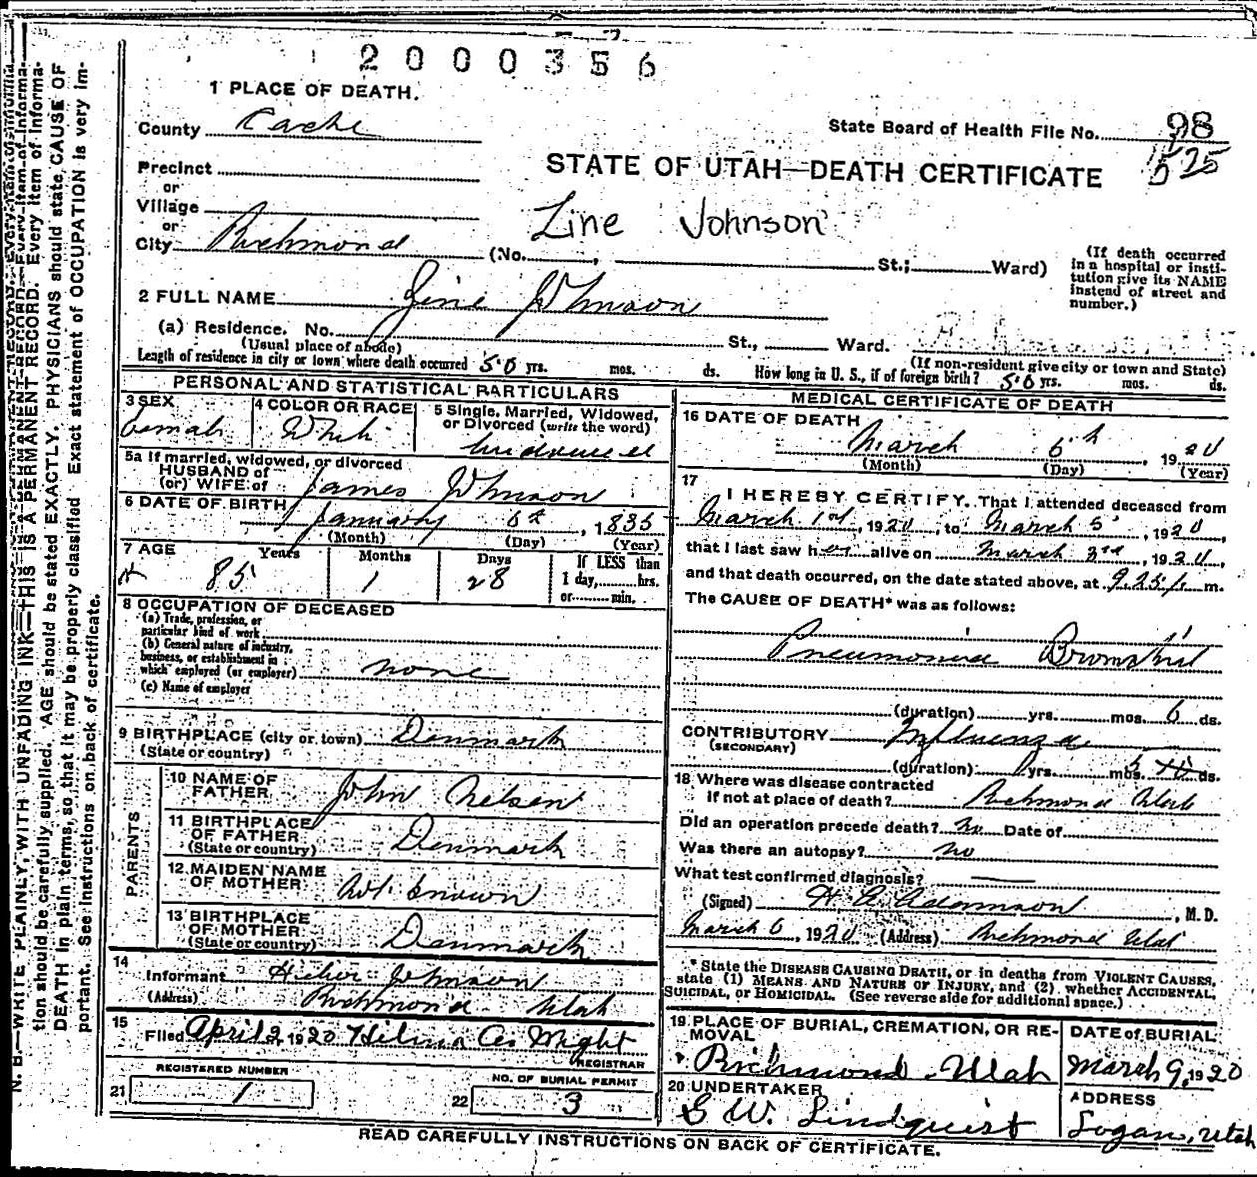 2000356
1 PLACE OF DEATH.
County Cache
State Board of Health File No. 98
525
STATE OF UTAH—DEATH CERTIFICATE
Precinct
or
Village
or
City Richmond (No. , St.; Ward)
Line Johnson
(If death occurred in a hospital or insti-
tution give its NAME
instead of street and
number.)
2 FULL NAME Line Johnson
(a) Residence. No. St., Ward.
(Usual place of abode)
(If non-resident give city or town and State)
Length of residence in city or town where death occurred 50 yrs. mos. ds. How long in U. S., if of foreign birth? 50 yrs. mos. ds.
PERSONAL AND STATISTICAL PARTICULARS
3 SEX
Female
4 COLOR OR RACE
White
5 Single, Married, Widowed,
or Divorced (write the word)
5a If married, widowed, or divorced
HUSBAND of
(or) WIFE of James Johnson
6 DATE OF BIRTH January 6th, 1835
(Month) (Day) (Year)
7 AGE Years Months Days If LESS than
85 1 28 1 day, hrs.
or min.
8 OCCUPATION OF DECEASED
(a) Trade, profession, or
particular kind of work
(b) General nature of industry,
business, or establishment in
which employed (or employer) none
(c) Name of employer
9 BIRTHPLACE (city or town) Denmark
(State or country)
PARENTS
10 NAME OF
FATHER John Nelsen
11 BIRTHPLACE
OF FATHER
(State or country) Denmark
12 MAIDEN NAME
OF MOTHER Not known
13 BIRTHPLACE
OF MOTHER
(State or country) Denmark
14
Informant Heber Johnson
(Address) Richmond Utah
15
Filed April 2 1920
REGISTRAR
REGISTERED NUMBER
21 1
NO. OF BURIAL PERMIT
22 3
MEDICAL CERTIFICATE OF DEATH
16 DATE OF DEATH
March 6th, 1920
(Month) (Day) (Year)
17
I HEREBY CERTIFY, That I attended deceased from
March 1st, 1920, to March 5, 1920,
that I last saw her alive on March 3rd, 1920,
and that death occurred, on the date stated above, at 9.25 m.
The CAUSE OF DEATH* was as follows:
Pneumonia Bronchial
(duration) yrs. mos. 6 ds.
CONTRIBUTORY Influenza
(SECONDARY)
(duration) yrs. mos. ds.
18 Where was disease contracted
if not at place of death? Richmond Utah
Did an operation precede death? No Date of
Was there an autopsy? no
What test confirmed diagnosis?
(Signed) H A Adamson, M. D.
March 6, 1920 (Address) Richmond Utah
* State the DISEASE CAUSING DEATH, or in deaths from VIOLENT CAUSES,
state (1) MEANS AND NATURE OF INJURY, and (2) whether ACCIDENTAL,
SUICIDAL, or HOMICIDAL. (See reverse side for additional space.)
19 PLACE OF BURIAL, CREMATION, OR RE-
MOVAL
Richmond Utah
DATE of BURIAL
March 9, 1920
20 UNDERTAKER
G W. Lindquist
ADDRESS
Logan, Utah
READ CAREFULLY INSTRUCTIONS ON BACK OF CERTIFICATE.
N. B.—WRITE PLAINLY, WITH UNFADING INK—THIS IS A PERMANENT RECORD. Every item of informa-
tion should be carefully supplied. AGE should be stated EXACTLY. PHYSICIANS should state CAUSE OF
DEATH in plain terms, so that it may be properly classified. Exact statement of OCCUPATION is very im-
portant. See instructions on back of certificate.